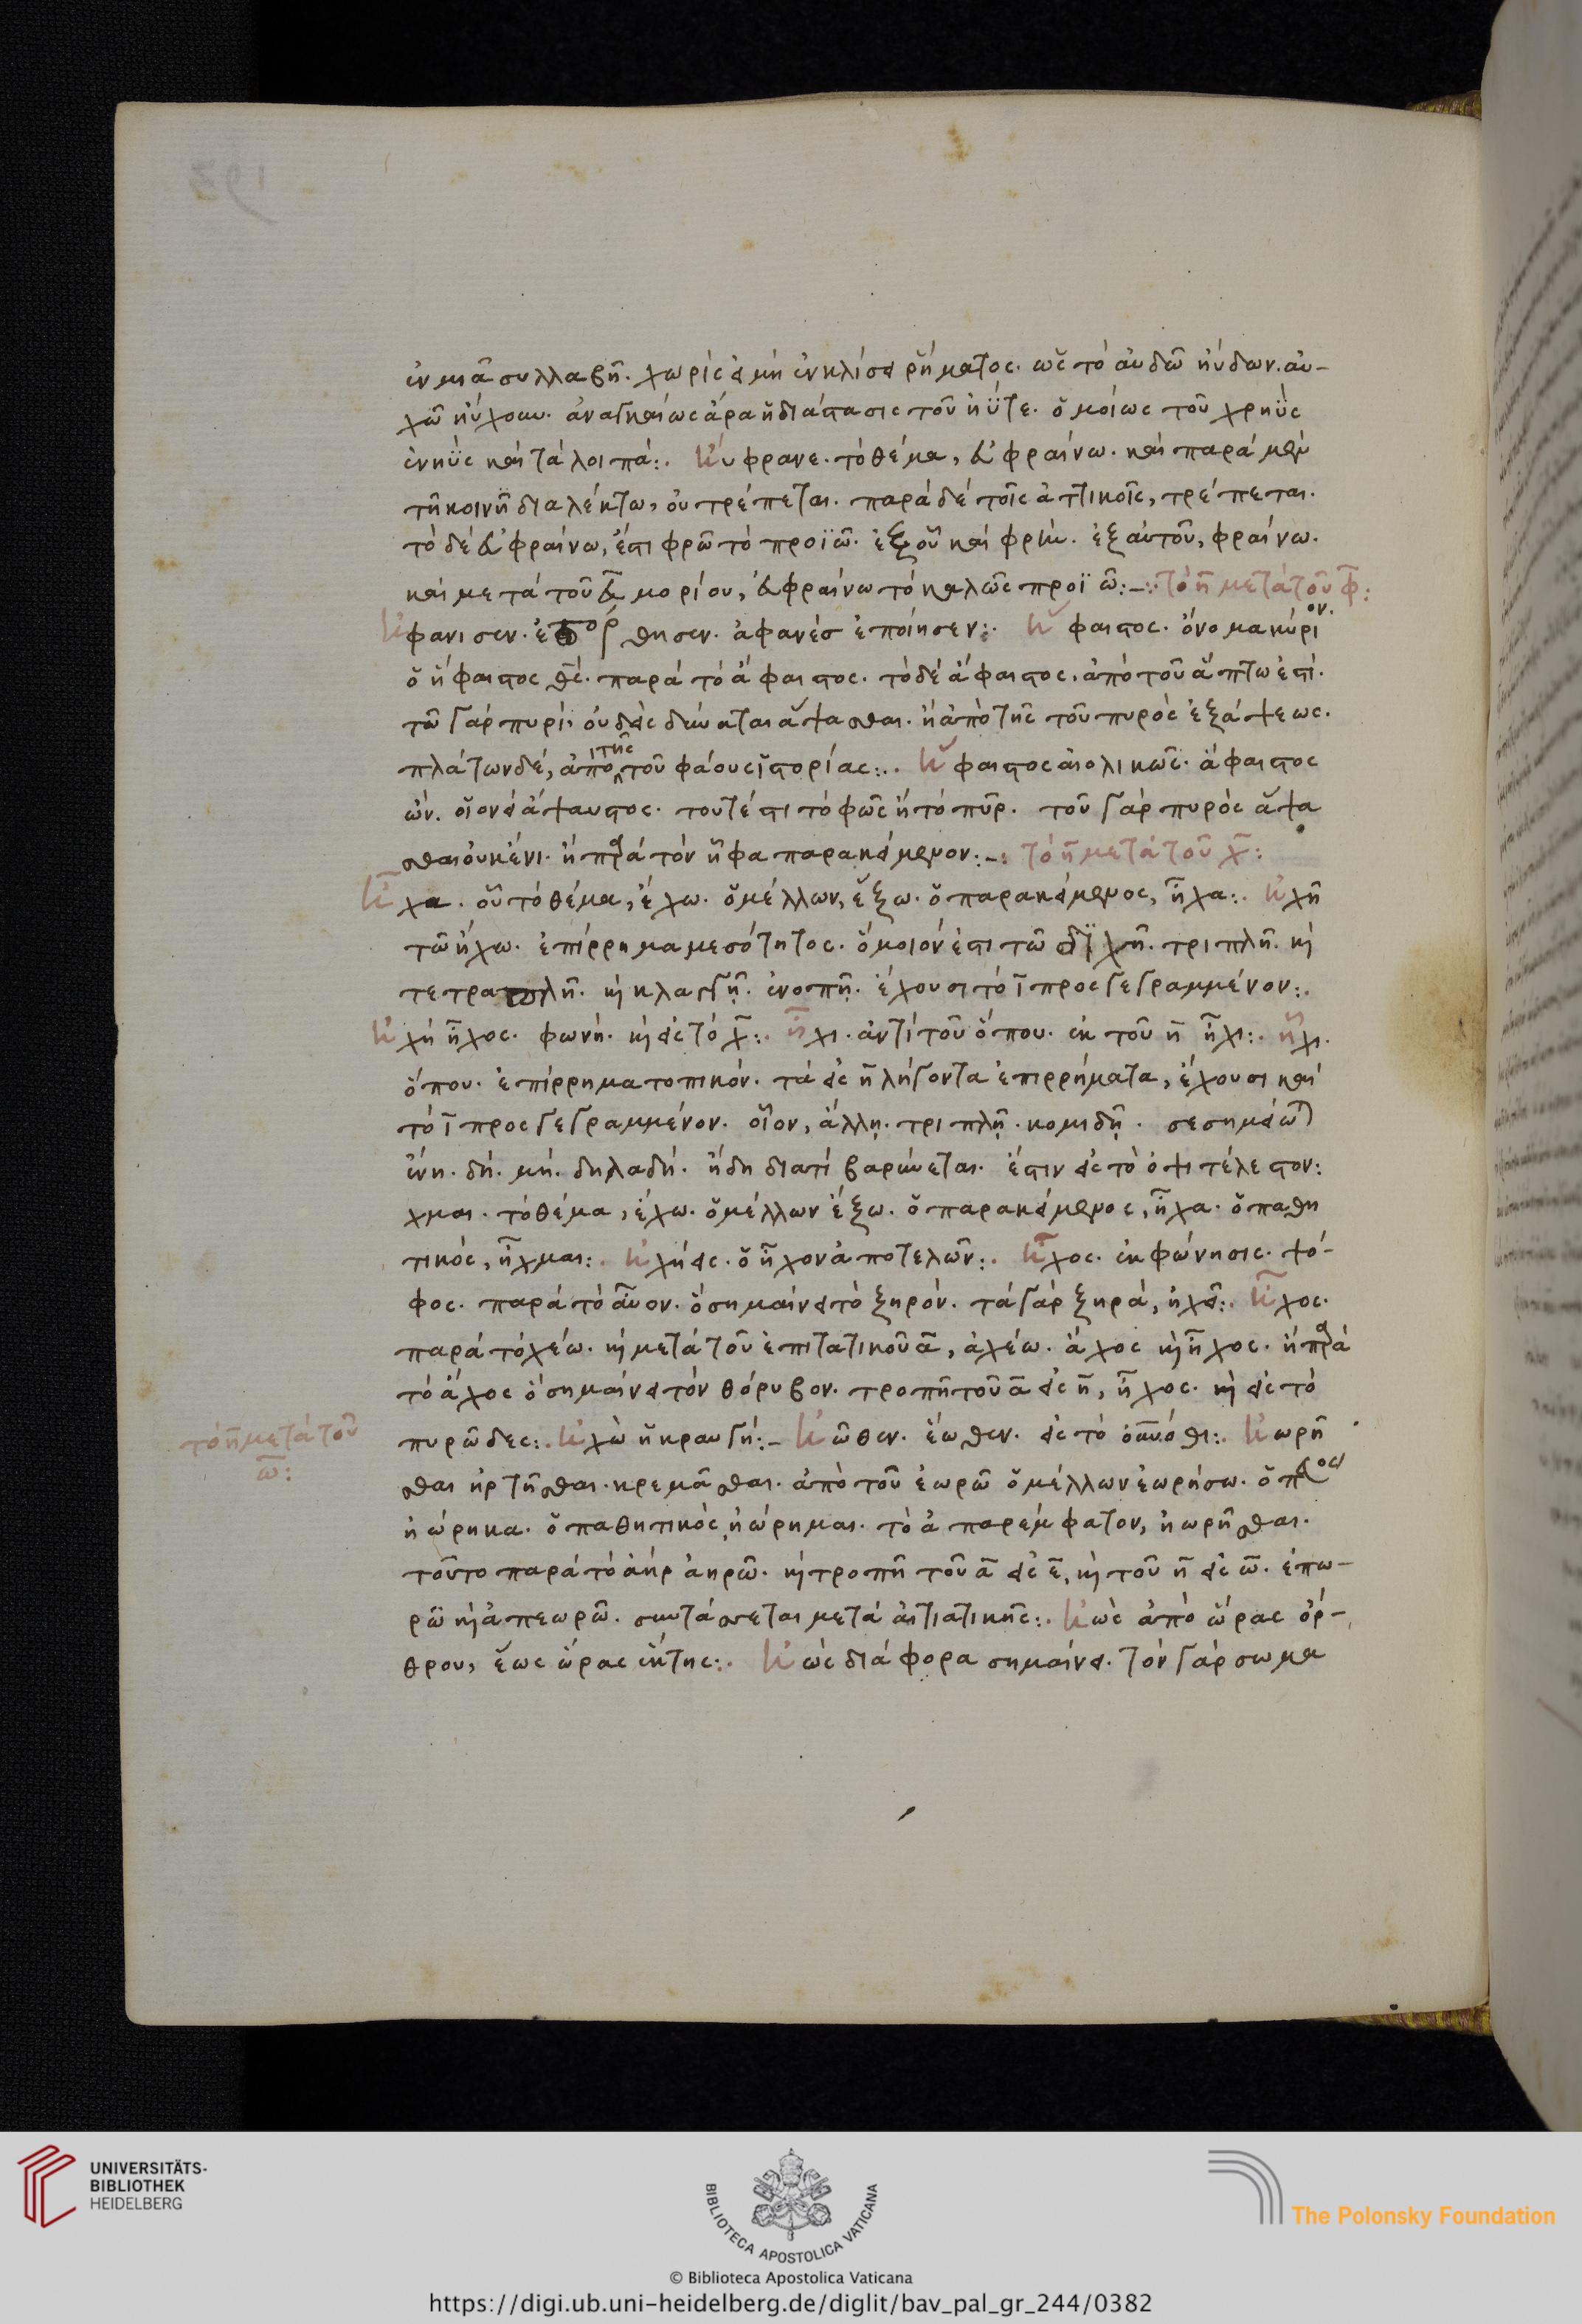 ἐν μιᾶ συλλαβῆ. χωρὶς εἰ μὴ ἐν κλίσει ῥήματος. ὡς τὸ αὐδῶ ηὔδων. αὐ-
χῶ ηὔχουν. ἀναγκαίως ἄρα ἡ διάστασις τοῦ ἠΰτε. ὁμοίως τοῦ χρηῢς
ἐνηῢς καὶ τὰ λοιπά:. ηὔφρανε. τὸ θέμα, εὐφραίνω. καὶ παρὰ μὲν
τῆ κοινῆ διαλέκτω, οὐ τρέπεται. παρὰ δὲ τοῖς ἀττικοῖς, τρέπεται.
τὸ δὲ εὐφραίνω, ἔστι φρῶ τὸ προϊῶ. ἐξ οὗ καὶ φρήν. ἐξ αὐτοῦ, φραίνω.
καὶ μετὰ τοῦ εὖ μορίου, εὐφραίνω τὸ καλῶς προϊῶ:-:· τὸ η̅ μετὰ τοῦ φ̅:
ἠφάνισεν. ἐπόρθησεν. ἀφανὲς ἐποίησεν:. ἥφαιστος. ὄνομα κύριον.
ὁ ἥφαιστος θεός. παρὰ τὸ ἄφαιστος. τὸ δὲ ἄφαιστος. ἀπὸ τοῦ ἅπτω ἐστί.
τῶ γὰρ πυρί, οὐδεὶς δύναται ἅψασθαι. ἢ ἀπὸ τῆς τοῦ πυρὸς ἐξάψεως.
πλάτων δέ, ἀπὸ τῆς τοῦ φάους ἱστορίας:. ἥφαιστος αἰολικῶς. ἄφαιστος
ὤν. οἱονεὶ ἄψαυστος. τουτέστι τὸ φῶς ἢ τὸ πῦρ. τοῦ γὰρ πυρὸς ἅψα
σθαι οὐκ ἔνι. ἢ παρὰ τὸν ἧφα παρακείμενον:-: τὸ η̅ μετὰ τοῦ χ̅:
ἦχα. οὗ τὸ θέμα, ἔχω. ὁ μέλλων, ἕξω. ὁ παρακείμενος, ἦχα:. ἠχῆ
τῶ ἤχω. ἐπίρρημα μεσότητος. ὅμοιόν ἐστι τῶ διχῆ. τριπλῆ. καὶ
τετραπλῆ. καὶ κλαγγῇ. ἐνοπῇ. ἔχουσι τὸ ϊ προσγεγραμμένον:.
ἠχὴ ἦχος. φωνή. καὶ εἰς τὸ χ̅:. ἧχι. ἀντὶ τοῦ ὅπου. ἐκ τοῦ ἧ ἧχι:. ἧχι.
ὅπου. ἐπίρρημα τοπικόν. τὰ εἰς η̅ λήγοντα ἐπιρρήματα, ἔχουσι καὶ
τὸ ϊ προσγεγραμμένον. οἷον, ἄλλῃ. τριπλῇ. κομιδῇ. σεσημείωται
ἔνη. δή. μή. δηλαδή. ἤδη διατί βαρύνεται. ἔστιν εἰς τὸ ὀψιτέλεστον:
χμαι. τὸ θέμα, ἔχω. ὁ μέλλων ἕξω. ὁ παρακείμενος, ἦχα. ὁ παθη
τικός, ἦγμαι:. ἠχήεις. ὁ ἦχον ἀποτελῶν:. ἦχος. ἐκφώνησις. ψό-
φος. παρὰ τὸ αὖον. ὃ σημαίνει τὸ ξηρόν. τὰ γὰρ ξηρά, ἠχεῖ:. ἦχος.
παρὰ τὸ χέω. καὶ μετὰ τοῦ ἐπιτατικοῦ α̅, ἀχέω. ἄχος καὶ ἦχος. ἢ παρὰ
τὸ ἄχος ὃ σημαίνει τὸν θόρυβον. τροπῆ τοῦ α̅ εἰς η̅, ἦχος. καὶ εἰς τὸ
τὸ η̅ μετὰ τοῦ
ω̅:
πυρῶδες:. ἠχὼ ἡ κραυγή:- ἠῶθεν. ἕωθεν. εἰς τὸ οὐρανόθι:. ἠωρῆ
σθαι ἠρτῆσθαι. κρεμᾶσθαι. ἀπὸ τοῦ ἐωρῶ ὁ μέλλων ἐωρήσω. ὁ παρακείμενος
ἠώρηκα. ὁ παθητικός, ἠώρημαι. τὸ ἀπαρέμφατον, ἠωρῆσθαι.
τοῦτο παρὰ τὸ ἀὴρ ἀηρῶ. καὶ τροπῆ τοῦ α̅ εἰς ε̅, καὶ τοῦ η̅ εἰς ω̅. ἐπω-
ρῶ καὶ ἀπεωρῶ. συντάσσεται μετὰ αἰτιατικῆς:. ἠὼς ἀπὸ ὥρας ὄρ-
θρου, ἕως ὥρας ἕκτης:. ἠὼς διάφορα σημαίνει. τὸν γὰρ σωμα
UNIVERSITÄTS-
BIBLIOTHEK
HEIDELBERG
BIBLIOTECA APOSTOLICA VATICANA
The Polonsky Foundation
© Biblioteca Apostolica Vaticana
https://digi.ub.uni-heidelberg.de/diglit/bav_pal_gr_244/0382